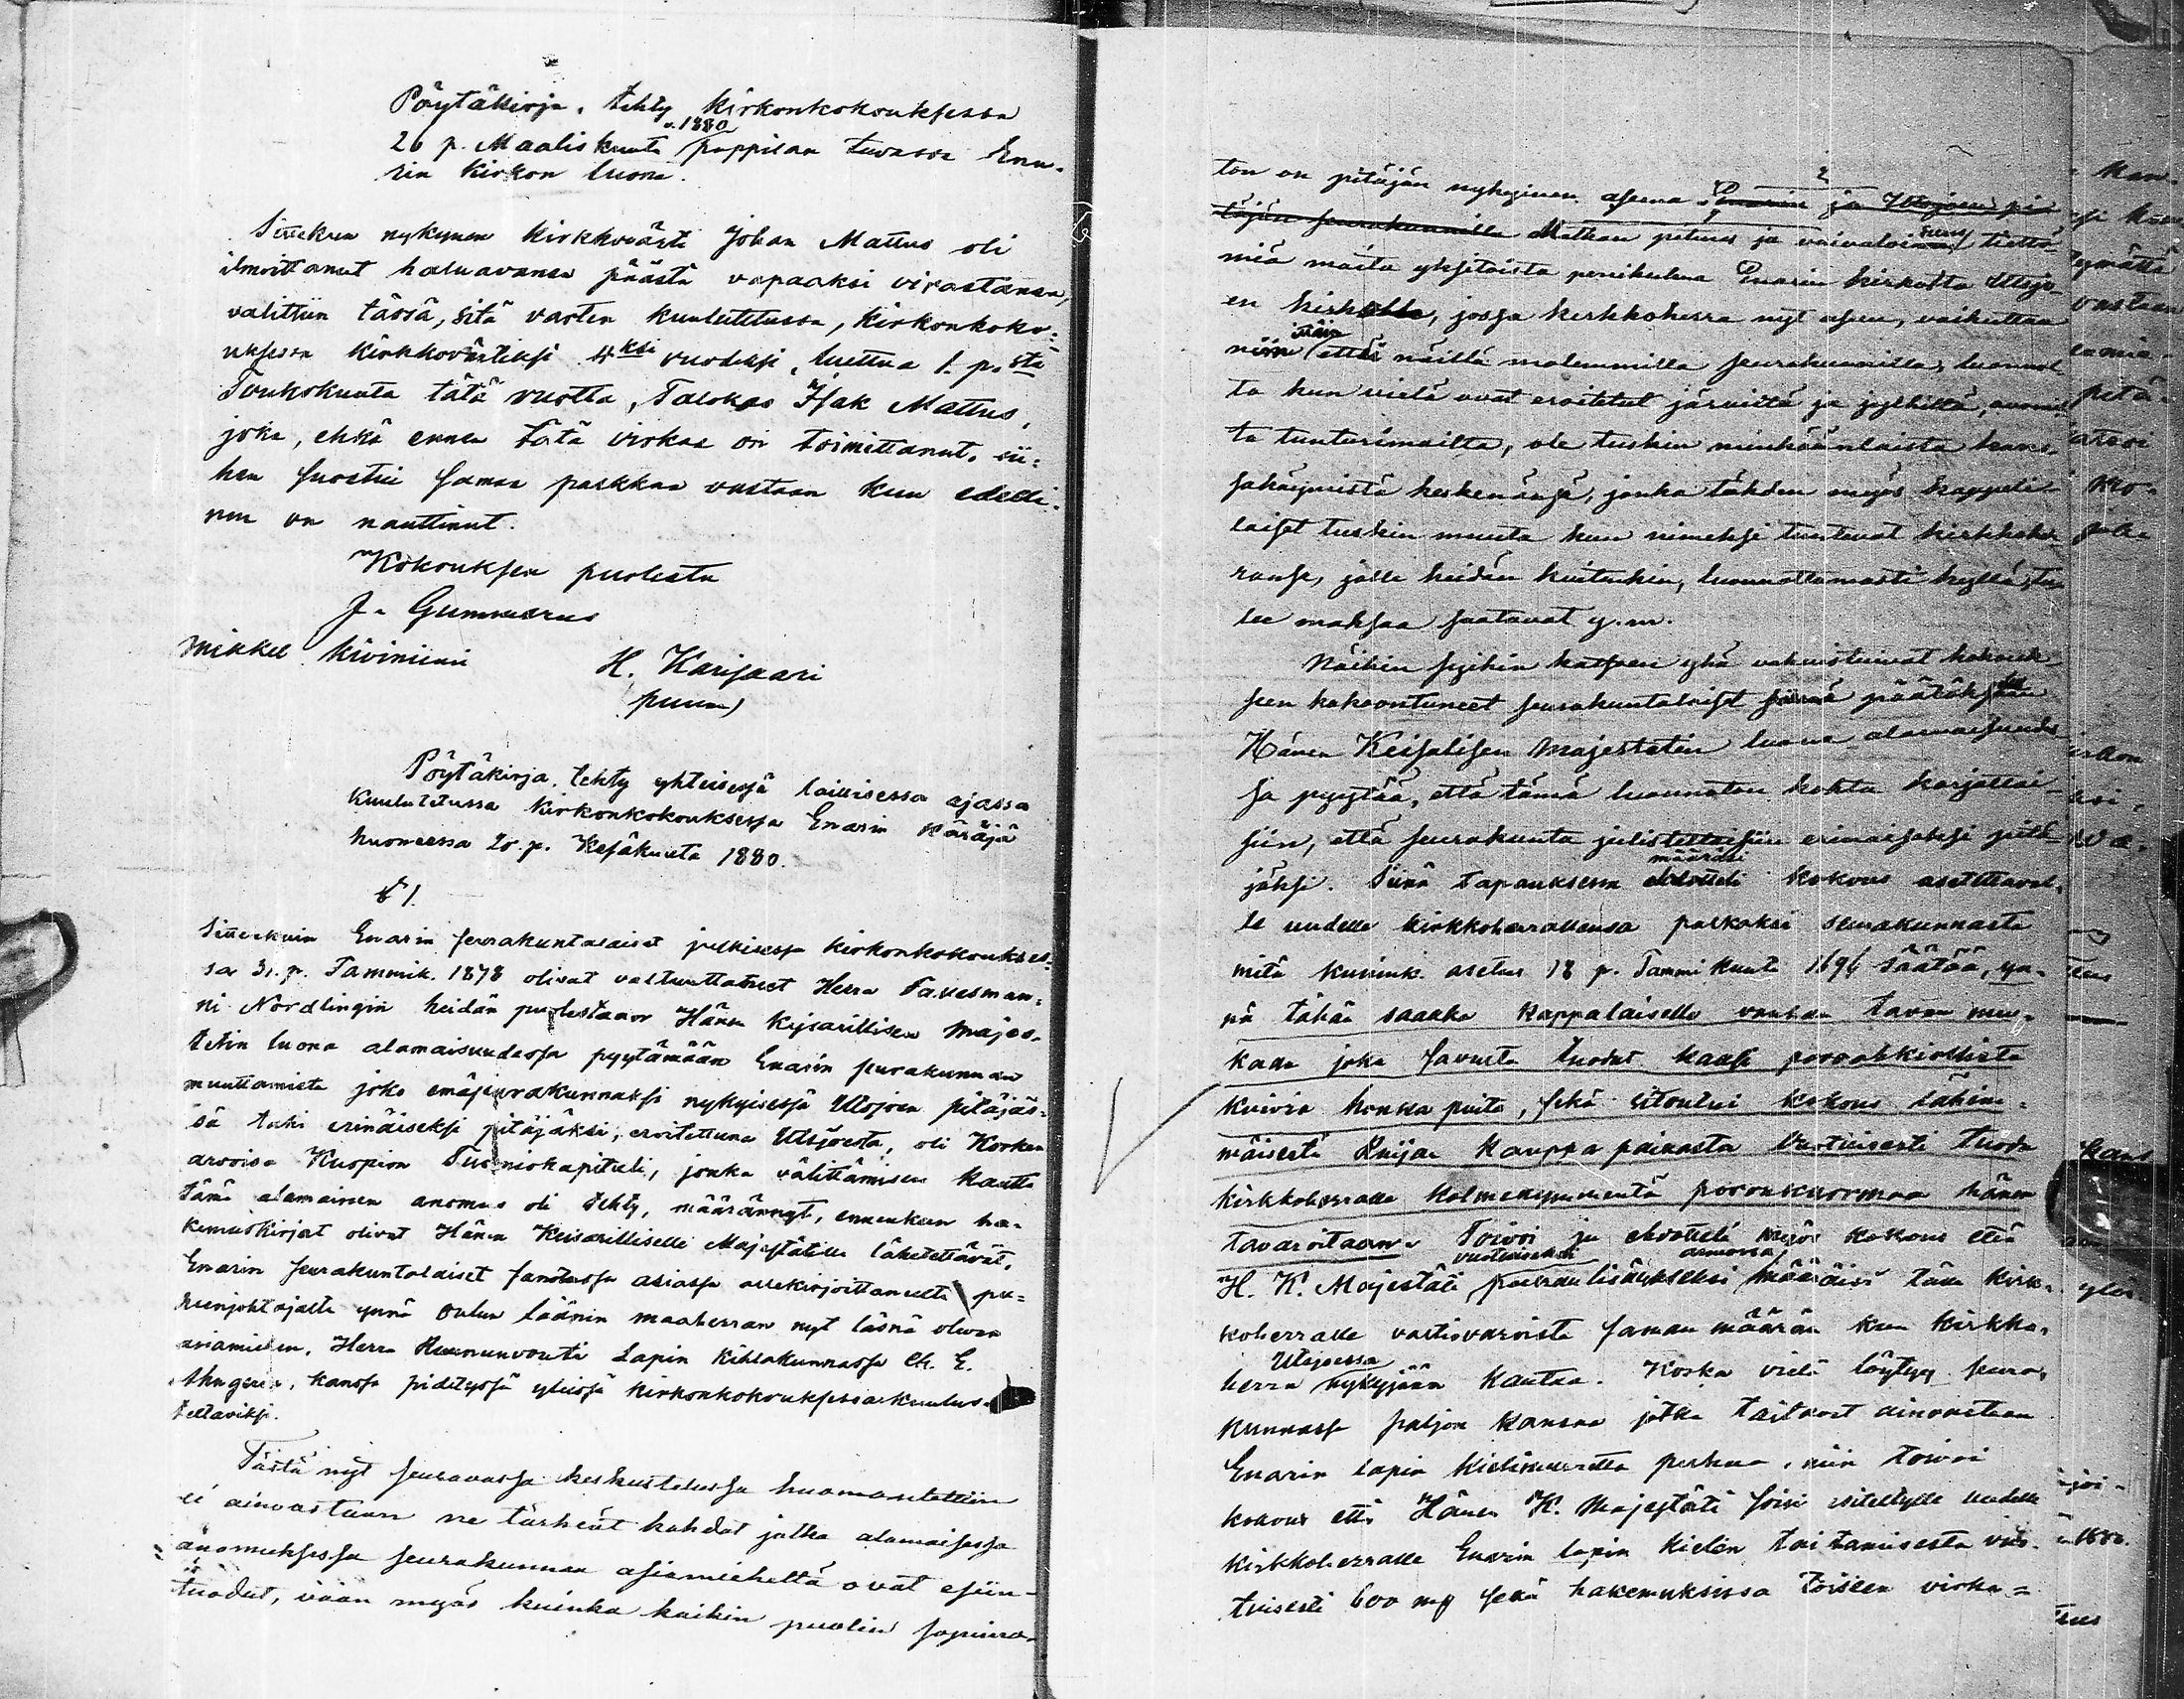 Pöytäkirja, tehty kirkonkokouksessa
v. 1880
26 p. Maaliskuuta pappilan tuvassa Ena-
rin kirkon luona.
Sittekun nykynen kirkkovärti Johan Mattus oli
ilmoittanut haluavansa päästä vapaaksi virastansa,
valittiin tässä, sitä varten kuulutetussa, kirkonkoko-
uksessa kirkkovärtiksi 4ksi vuodeksi, luettua 1. p.stä
Toukokuuta tätä vuotta, Talokas Isak Mattus,
joka, ehkä ennen tätä virkaa on toimittanut, sii-
hen suostui samaa palkkaa vastaan kun edelli-
nen on nauttinut.
Kokouksen puolesta
J. Gummerus
Mikkel Kiviniemi H. Karijaari
puum)
Pöytäkirja, tehty yhteisessä laillisessa ajassa
kuulutetussa kirkonkokouksessa Enarin käräjä
huoneessa 20. p. Kesäkuuta 1880.
§ 1.
Sittenkuin Enarin seurakuntalaiset julkisessa kirkonkokoukses-
sa 31. p. Tammik. 1878 olivat valtuuttaneet Herra Talusman-
ni Nordlingin heidän puolestaan Hänen Kejsarillisen Majes-
tetin luona alamaisuudessa pyytämään Enarin seurakunnan
muuttamista joko emäseurakunnaksi nykyisessä Utsjoen pitäjäs-
sä taki erinäiseksi pitäjäksi, eroitettuna Utsjoesta, oli Korkea
arvoisa Kuopion Tuomiokapituli, jonka välittämisen kautta
tämä alamainen anomus oli tehty, määrännyt, ennenkuin ha-
kemuskirjat olivat Hänen Keisarilliselle Majestätille lähetettävät,
Enarin seurakuntalaiset sanotussa asiassa allekirjoittaneelta pu-
heenjohtajalta ynnä Oulun läänin maaherran nyt läsnä olevan
asiamiehen, Herra Ruununvouti Lapin kihlakunnassa Ch. E.
kanssa pidetyssä yleissä kirkonkokouksessa kuulus-
teltaviksi.
Tästä nyt seuraavassa keskustelussa huomautettiin
ei ainoastaan ne tärkeät kohdat jotka alamaisessa
anomuksessa seurakunnan asiamieheltä ovat esiin-
tuodut, vaan myös kuinka kaikin puolin sopima-
2
ton on pitäjän nykyinen asema Enarin ja Utsjoen pi-
täjän seurakunnilla Matkan pituus ja vaivaloisuus tiettö-
miä maita yksitoista penikulmaa Enarin kirkolta Utsjo-
en kirkolle, jossa kirkkoherra nyt asuu, vaikuttaa
niin että näillä molemmilla seurakunnilla, luonnol-
ta kun vielä ovat eroitetut järviltä ja jylhiltä, avonii-
ta tunturimailta, ole tuskin minkäänlaista kans-
sakäymistä keskenänsä, jonka tähden myös kappeli-
laiset tuskin muuta kun nimeksi tuntevat kirkkoher-
ransa, jolle heidän kuitenkin, luonnottomasti kyllä, tu-
lee maksaa saatavat y. m.
Näihin syihin katsoen yhä vahvistivat kokouk-
seen kokoontuneet seurakuntalaiset päätöksen
Hänen Keisalisen Majestetin luona alamaisuudes-
sa pyytää, että tämä luonnoton kohta korjattai-
siin, että seurakunta julistettaisiin erinaisseksi pitä-
määräsi
jäksi. Siinä tapauksessa ehdotteli kokous asetettaval-
le uudelle kirkkoherrallensa palkaksi seurakunnasta
mitä kunink. asetus 18 p. Tammikuuta 1696 säätää, yn-
nä tähän saakka kappalaiselle vanhan tavan mu-
kaan joka savusta tuodut kaksi poroahkiollista
kuivia honka puita, sekä sitoutui kokous lähim-
mäisestä Ruijan kauppa paikasta vuotuisesti tuoda
kirkkoherralle kolmekymmentä poronkuormaa hänen
tavaroitaan. Toivoi ja ehdotteli myös kokous että
vuotuiseksi armossa
H. K. Majestäti palkan lisäykseksi määräisi tälle kirk-
koherralle valtiovaroista saman määrän kun kirkko-
Utsjoessa
herra nykyjään kantaa. Koska vielä löytyy seura-
kunnassa paljon kansaa jotka taitavat ainoastaan
Enarin lapin kielimurretta puhua, niin toivoi
kokous että Hänen K. Majestäti soisi esitellylle uudelle
kirkkoherralle Enarin lapin kielen taitamisesta vuo-
tuisesti 600 mk sekä hakemuksissa toiseen virka-